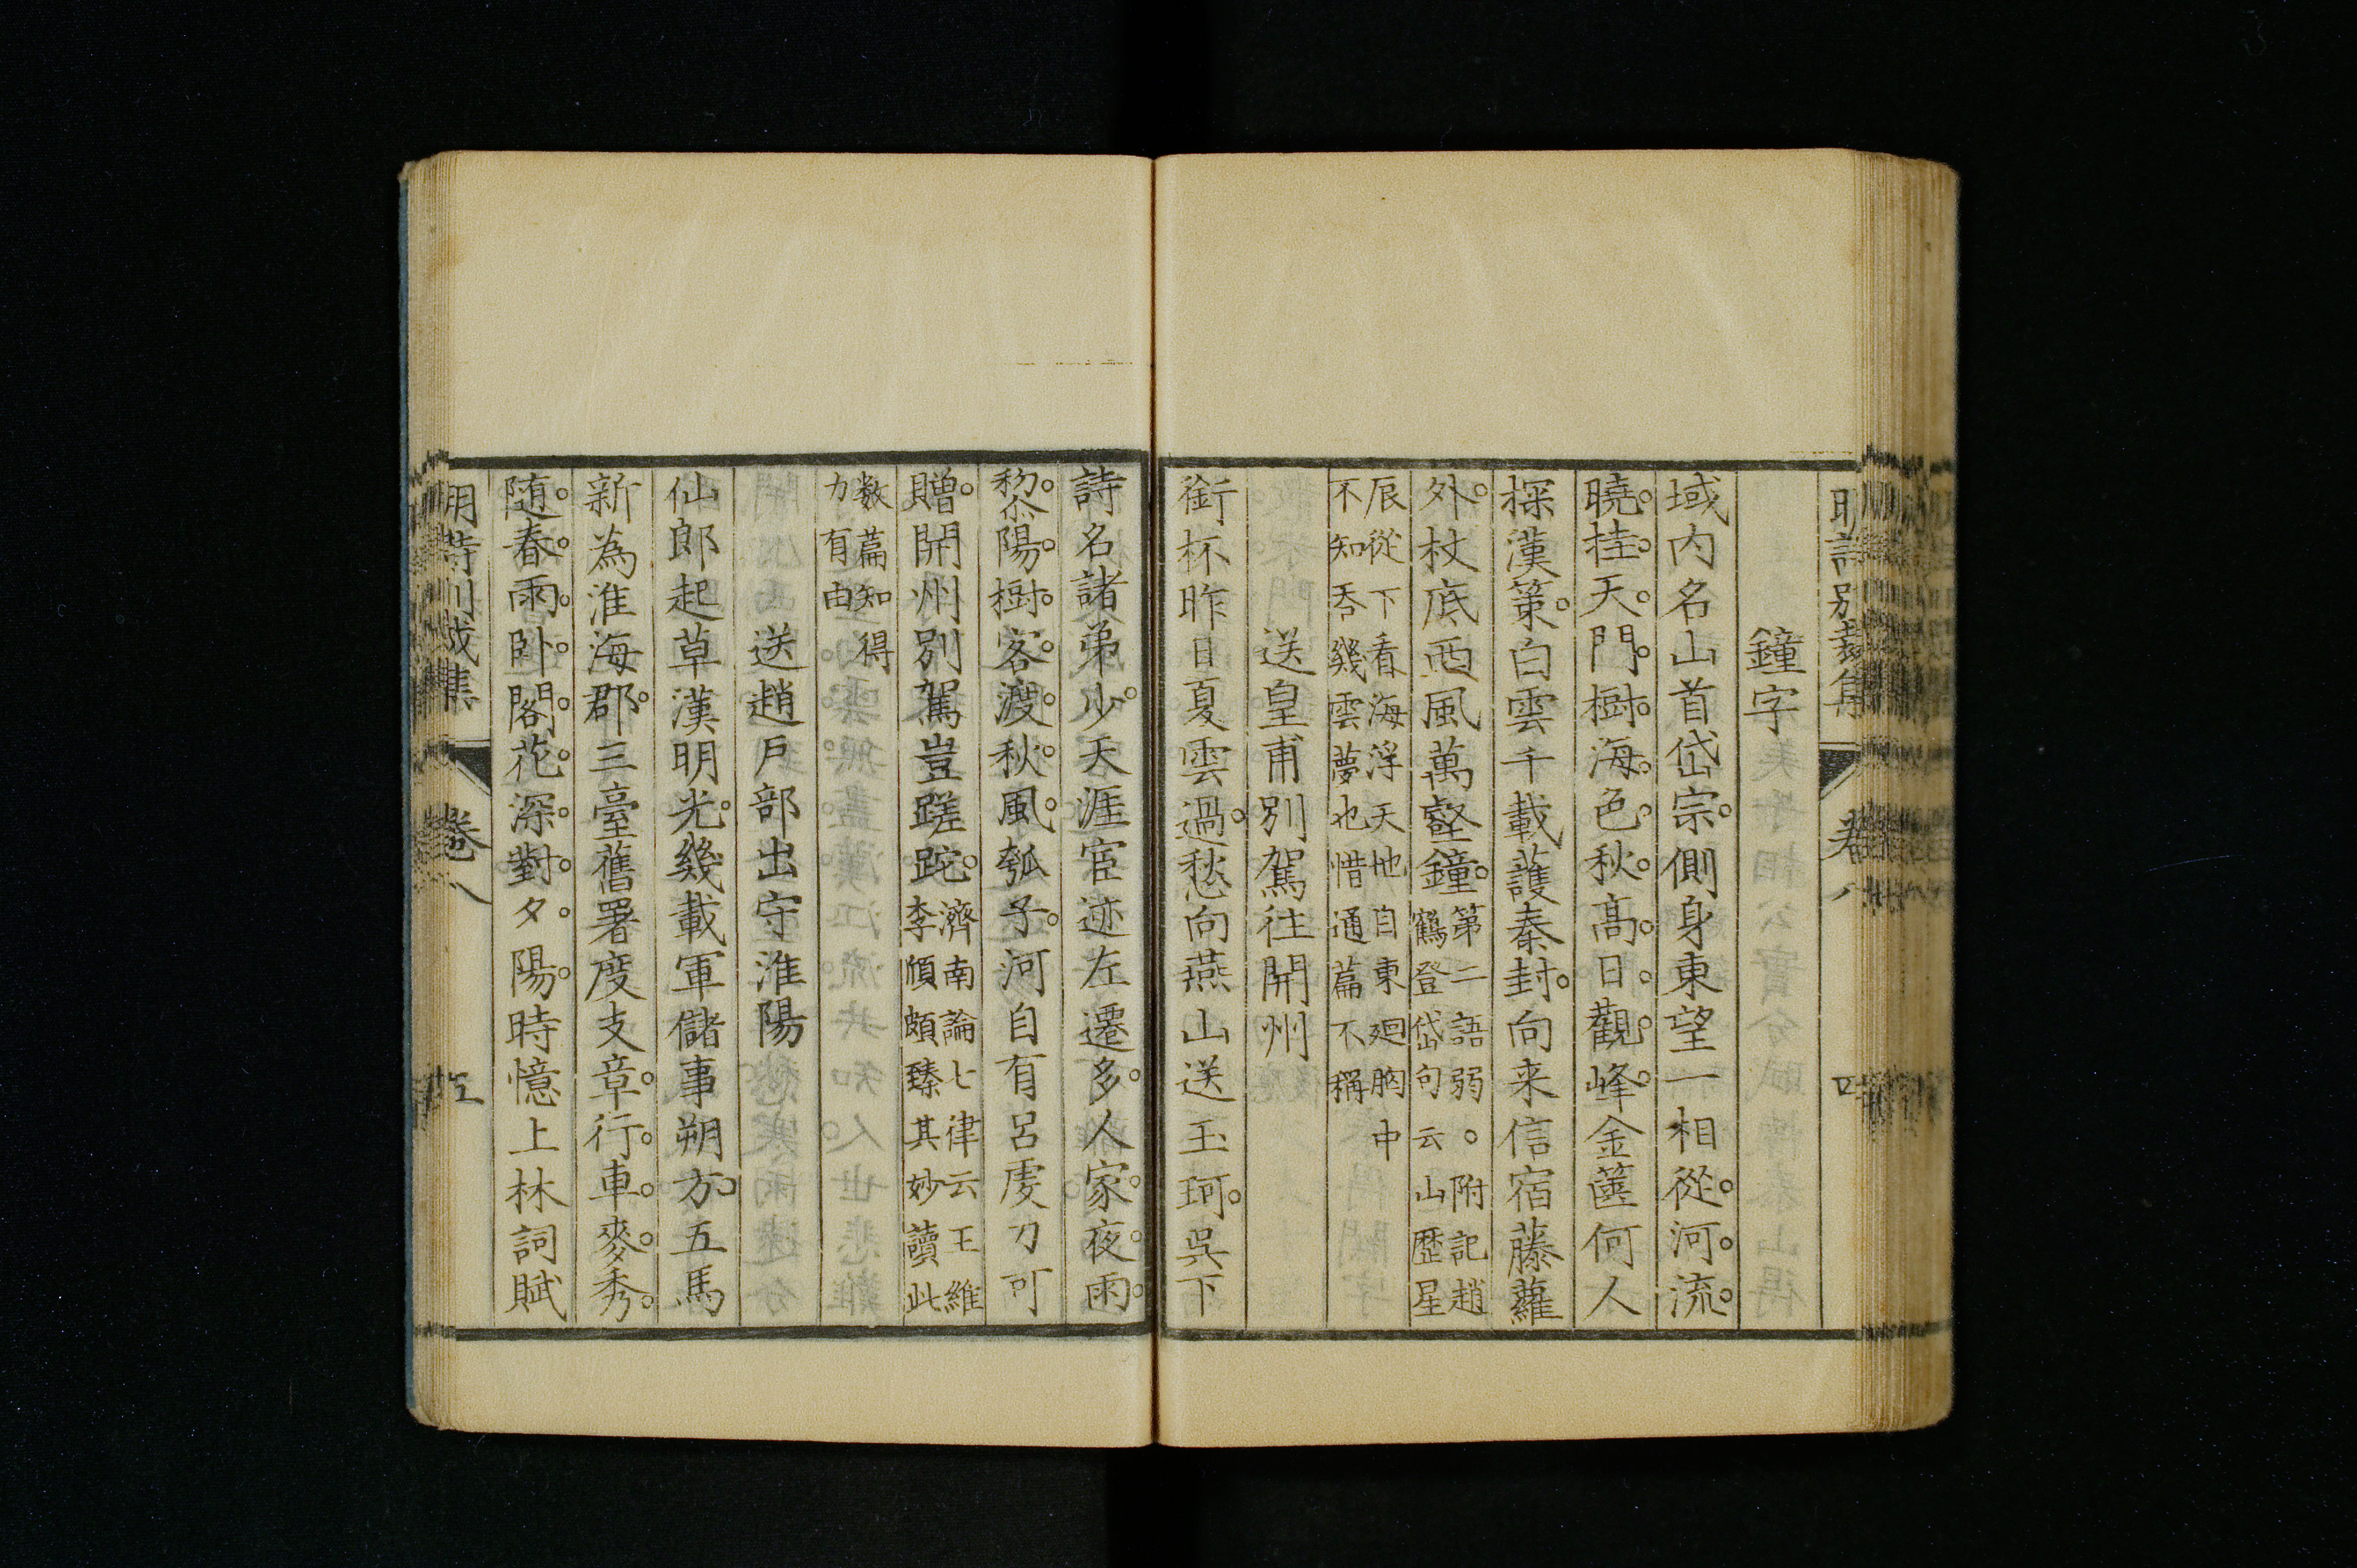 明詩別裁集 卷八 四
鐘字
域內名山首岱宗。側身東望一相從。河。流。
曉。挂。天。門。樹。海。色。秋。高。日。觀。峰。金篋何人
探漢策。白雲千載護秦封。向来信宿藤蘿
外。杖底西風萬壑鐘。第二語弱。附記趙
鶴登岱句云山歷星
辰從下看海浮天地自東廻胸中
不知吞幾雲夢也惜通篇不稱
送皇甫別駕往開州
銜杯昨日夏雲過。愁向燕山送玉珂。吳下
詩名諸弟少。天涯宦迹左遷多。人家。夜。雨。
黎。陽。樹。客。渡。秋。風。瓠子。河自有呂虔刀可
贈。開州別駕豈蹉跎。濟南論七律云王維
李頎頗臻其妙讀此
数篇知得
力有由
送趙戶部出守淮陽
仙郎起草漢明光。幾載軍儲事朔方。五馬
新為淮海郡。三臺舊署度支章。行。車。麥。秀。
随。春。雨。卧。閣。花。深。對。夕。陽。時憶上林詞賦
明詩別裁集 卷八 五